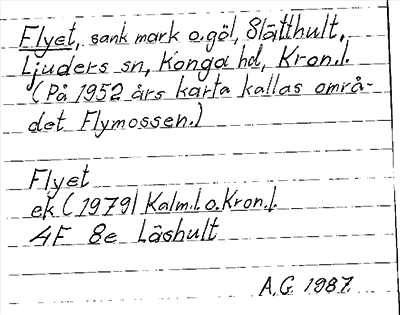 Flyet, sank mark o.göl, Slätthult,
Ljuders sn, Konga hd, Kron.l.
(På 1952 års karta kallas områ-
det Flymossen.)
Flyet
ek (1979) Kalm.l.o.Kron.l.
4F 8e Låshult
A.G. 1987